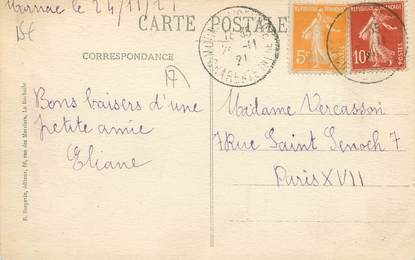 Marnac le 24/11/21
15E
CARTE POSTALE
CORRESPONDANCE
17
Bons baisers d'une
petite amie
Eliane
RÉPUBLIQUE FRANÇAISE
5c
RÉPUBLIQUE FRANÇAISE
10c
Madame Vercasson
7 Rue Saint Senoch 7
Paris XVII
R. Bergevin, éditeur, rue des Merciers, La Rochelle